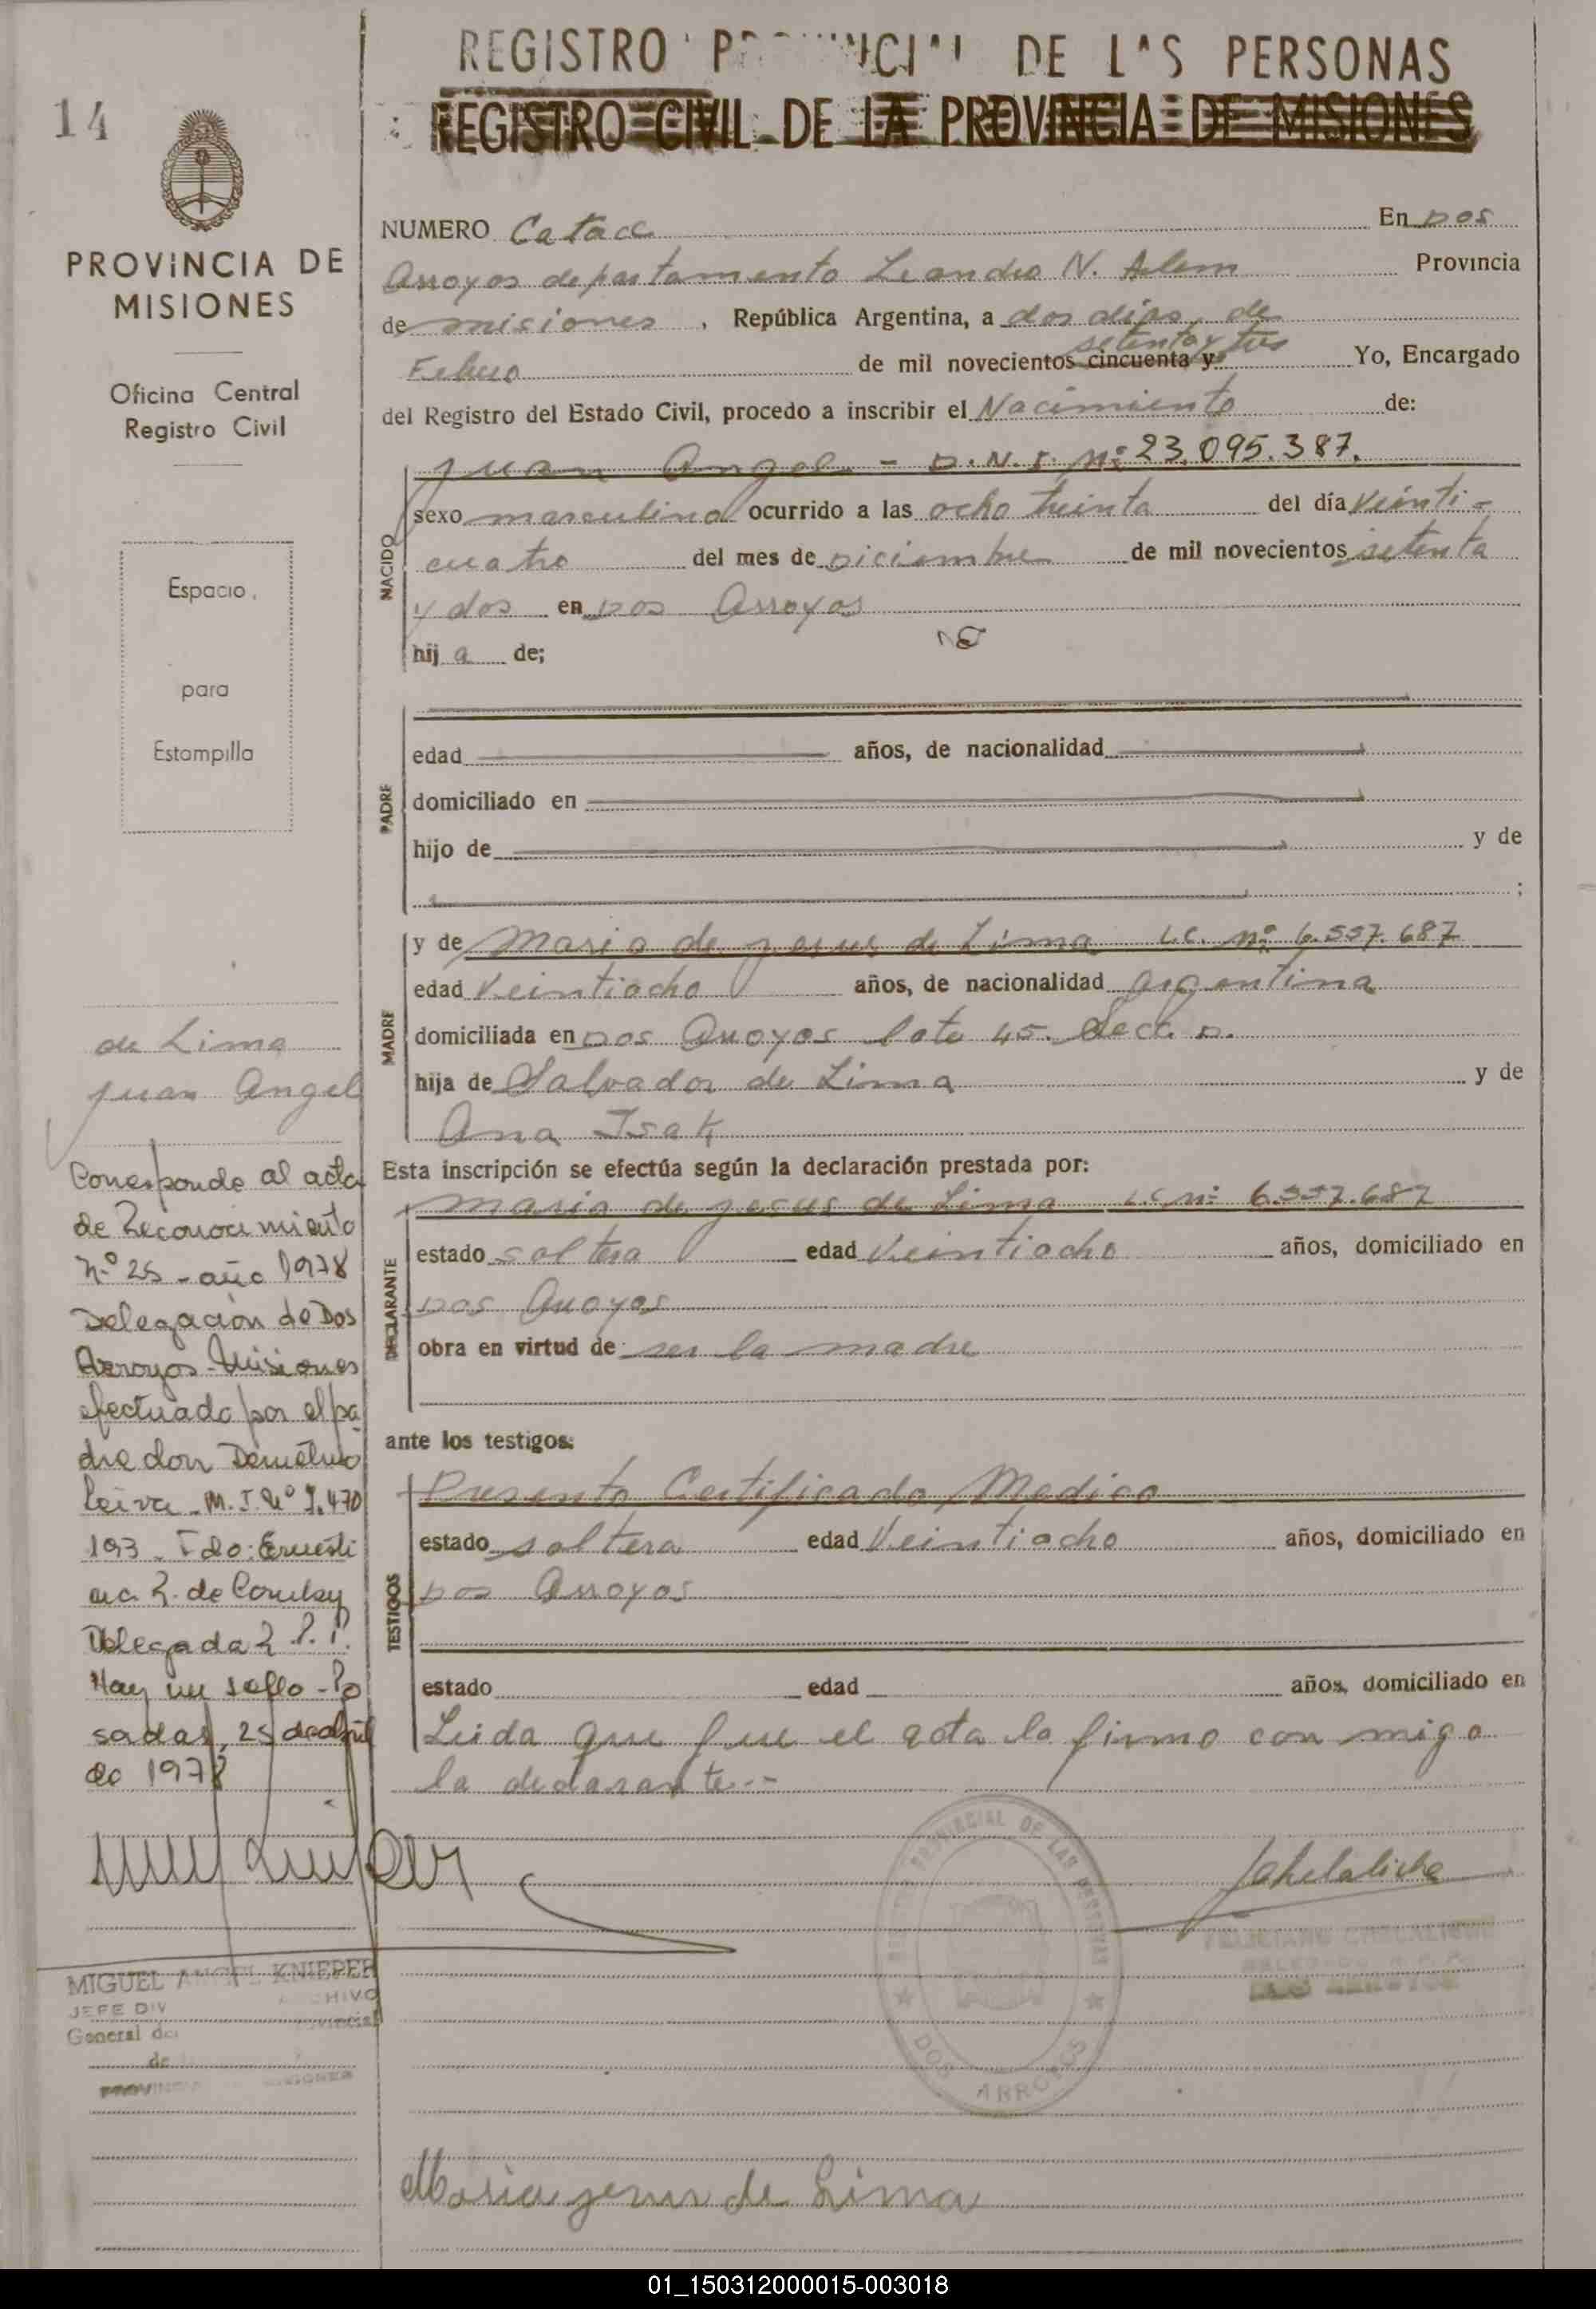 14
PROVINCIA DE
MISIONES
Oficina Central
Registro Civil
Espacio
para
Estampilla
de Lima
Juan Angel
Corresponde al acta
de Reconocimiento
Nº 25 - año 1978
Delegación de Dos
Arroyos - Misiones
efectuado por el pa
dre don Demetrio
Leiva - M.I. Nº 7.470
193 - Fdo: Ernesti
na R. de
Delegada R.P.P.
Hay un sello - Po
sadas, 25 de abril
de 1978
MIGUEL ANGEL KNIEPER
JEFE DIV
General de
REGISTRO PROVINCIAL DE LAS PERSONAS
REGISTRO CIVIL DE LA PROVINCIA DE MISIONES
NUMERO Catace En Dos
Arroyos departamento Leandro N. Alem Provincia
de misiones, República Argentina, a dos dias, de
setenta y tres
Febrero de mil novecientos cincuenta y Yo, Encargado
del Registro del Estado Civil, procedo a inscribir el Nacimiento de:
NACIDO
Juan Angel - D.N.I. Nº 23.095.387.
sexo masculino ocurrido a las ocho treinta del día Veinti-
cuatro del mes de Diciembre de mil novecientos setenta
y dos en Dos Arroyos
hij a de;
PADRE
edad años, de nacionalidad
domiciliado en
hijo de y de
;
MADRE
y de Maria de Jesus de Lima L.C. nº 6.557.687
edad Veintiocho años, de nacionalidad argentina
domiciliada en Dos Arroyos lote 45. Secc. D.
hija de Salvador de Lima y de
Ana Isak
Esta inscripción se efectúa según la declaración prestada por:
DECLARANTE
Maria de Jesus de Lima L.C. nº 6.557.687
estado soltera edad Veintiocho años, domiciliado en
Dos Arroyos
obra en virtud de ser la madre
ante los testigos:
TESTIGOS
Presento Certificado Medico
estado soltera edad Veintiocho años, domiciliado en
Dos Arroyos
estado edad años, domiciliado en
Leida que fue el acta la firmo con migo
la declarante.--
REGISTRO PROVINCIAL DE LAS PERSONAS
DOS ARROYOS
Maria Jesus de Lima
01_150312000015-003018